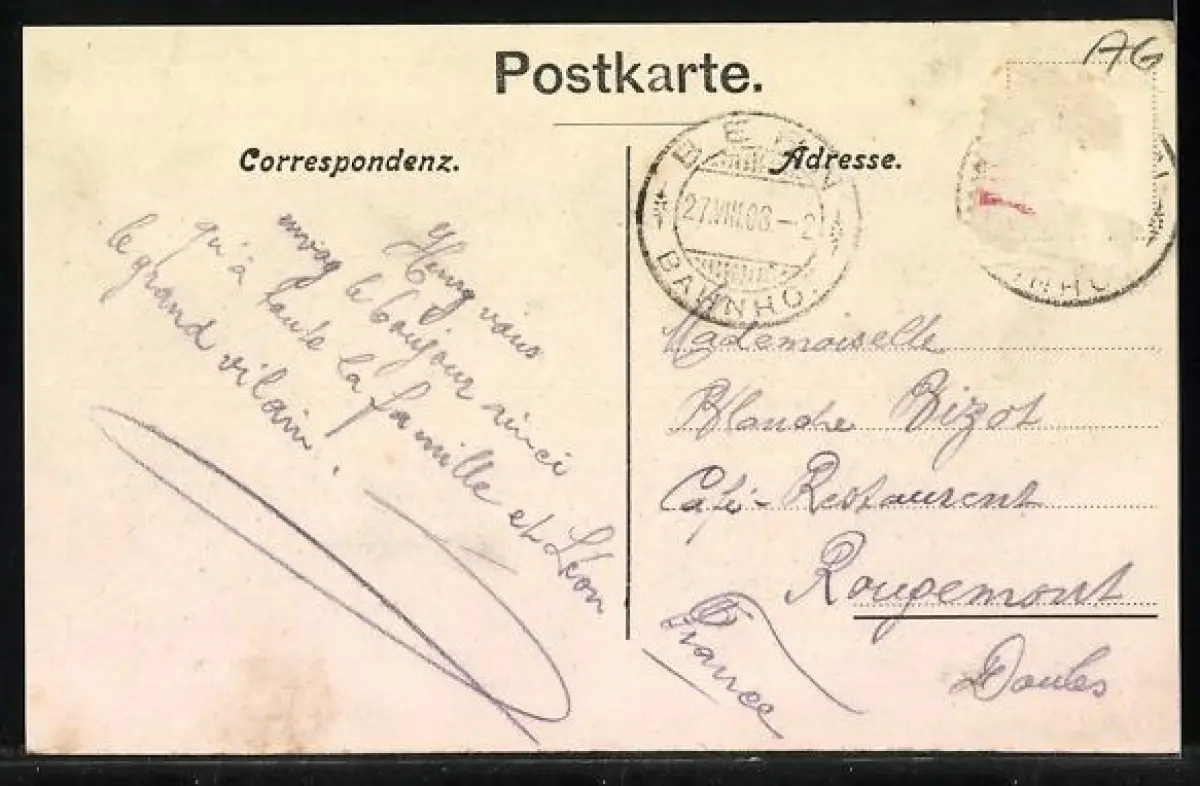 Postkarte.
Correspondenz.
Adresse.
AG
BERN
27.VIII.08.-2
BAHNHO.
NHO
Henry vous
envoy le bonjour ainci
qu'à toute la famille et Léon
le grand vilain.
Mademoiselle
Blanche Bizot
Café-Restaurent
Rougemont
Doubs
France